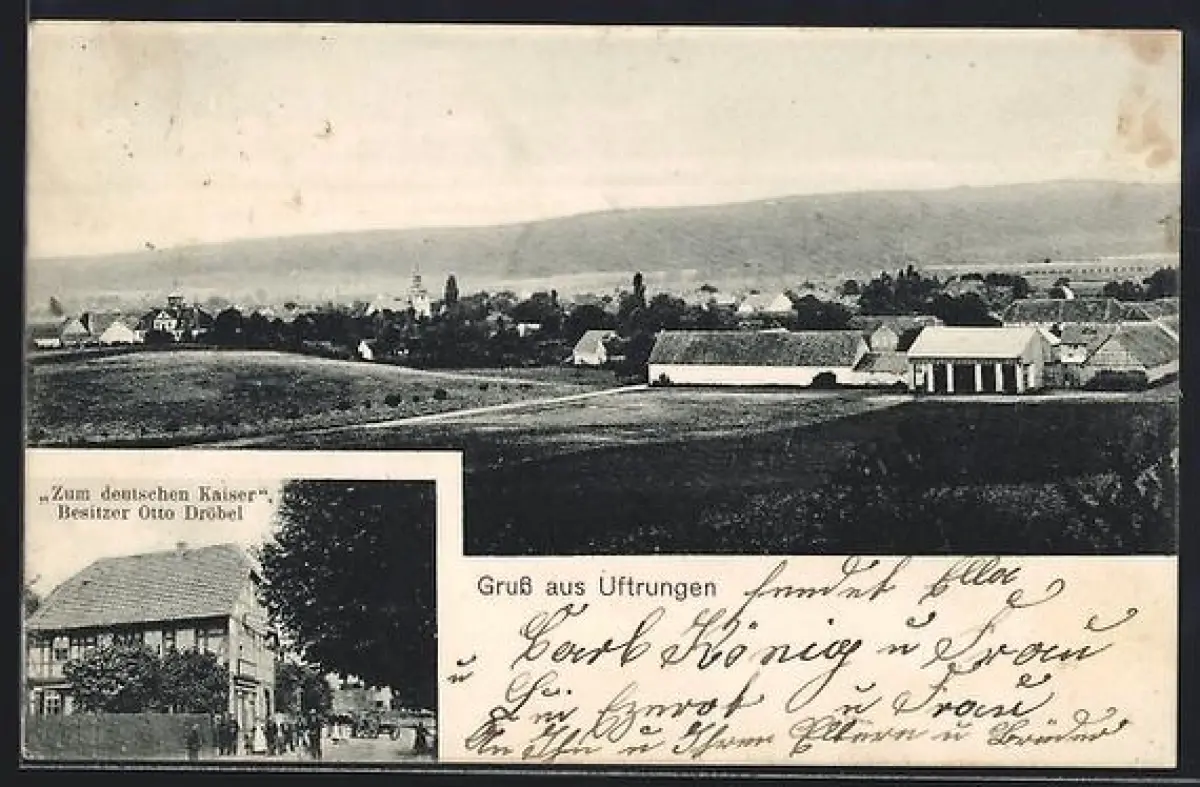 „Zum deutschen Kaiser“,
Besitzer Otto Dröbel
Gruß aus Uftrungen
sendet Ella
Carl König u Frau
u
u Frau
An Ihn u Ihren Eltern u Brüder